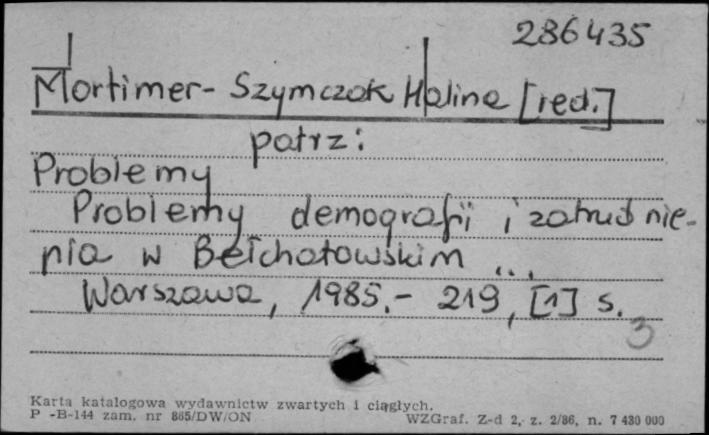 286435
Mortimer-Szymczak Halina [red.]
patrz:
Problemy
Problemy demografii i zatrudnie-
nia w Bełchatowskim ...
Warszawa, 1985.- 219, [1] s.
3
Karta katalogowa wydawnictw zwartych i ciągłych.
P -B-144 zam. nr 865/DW/ON WZGraf. Z-d 2, z. 2/86, n. 7 430 000